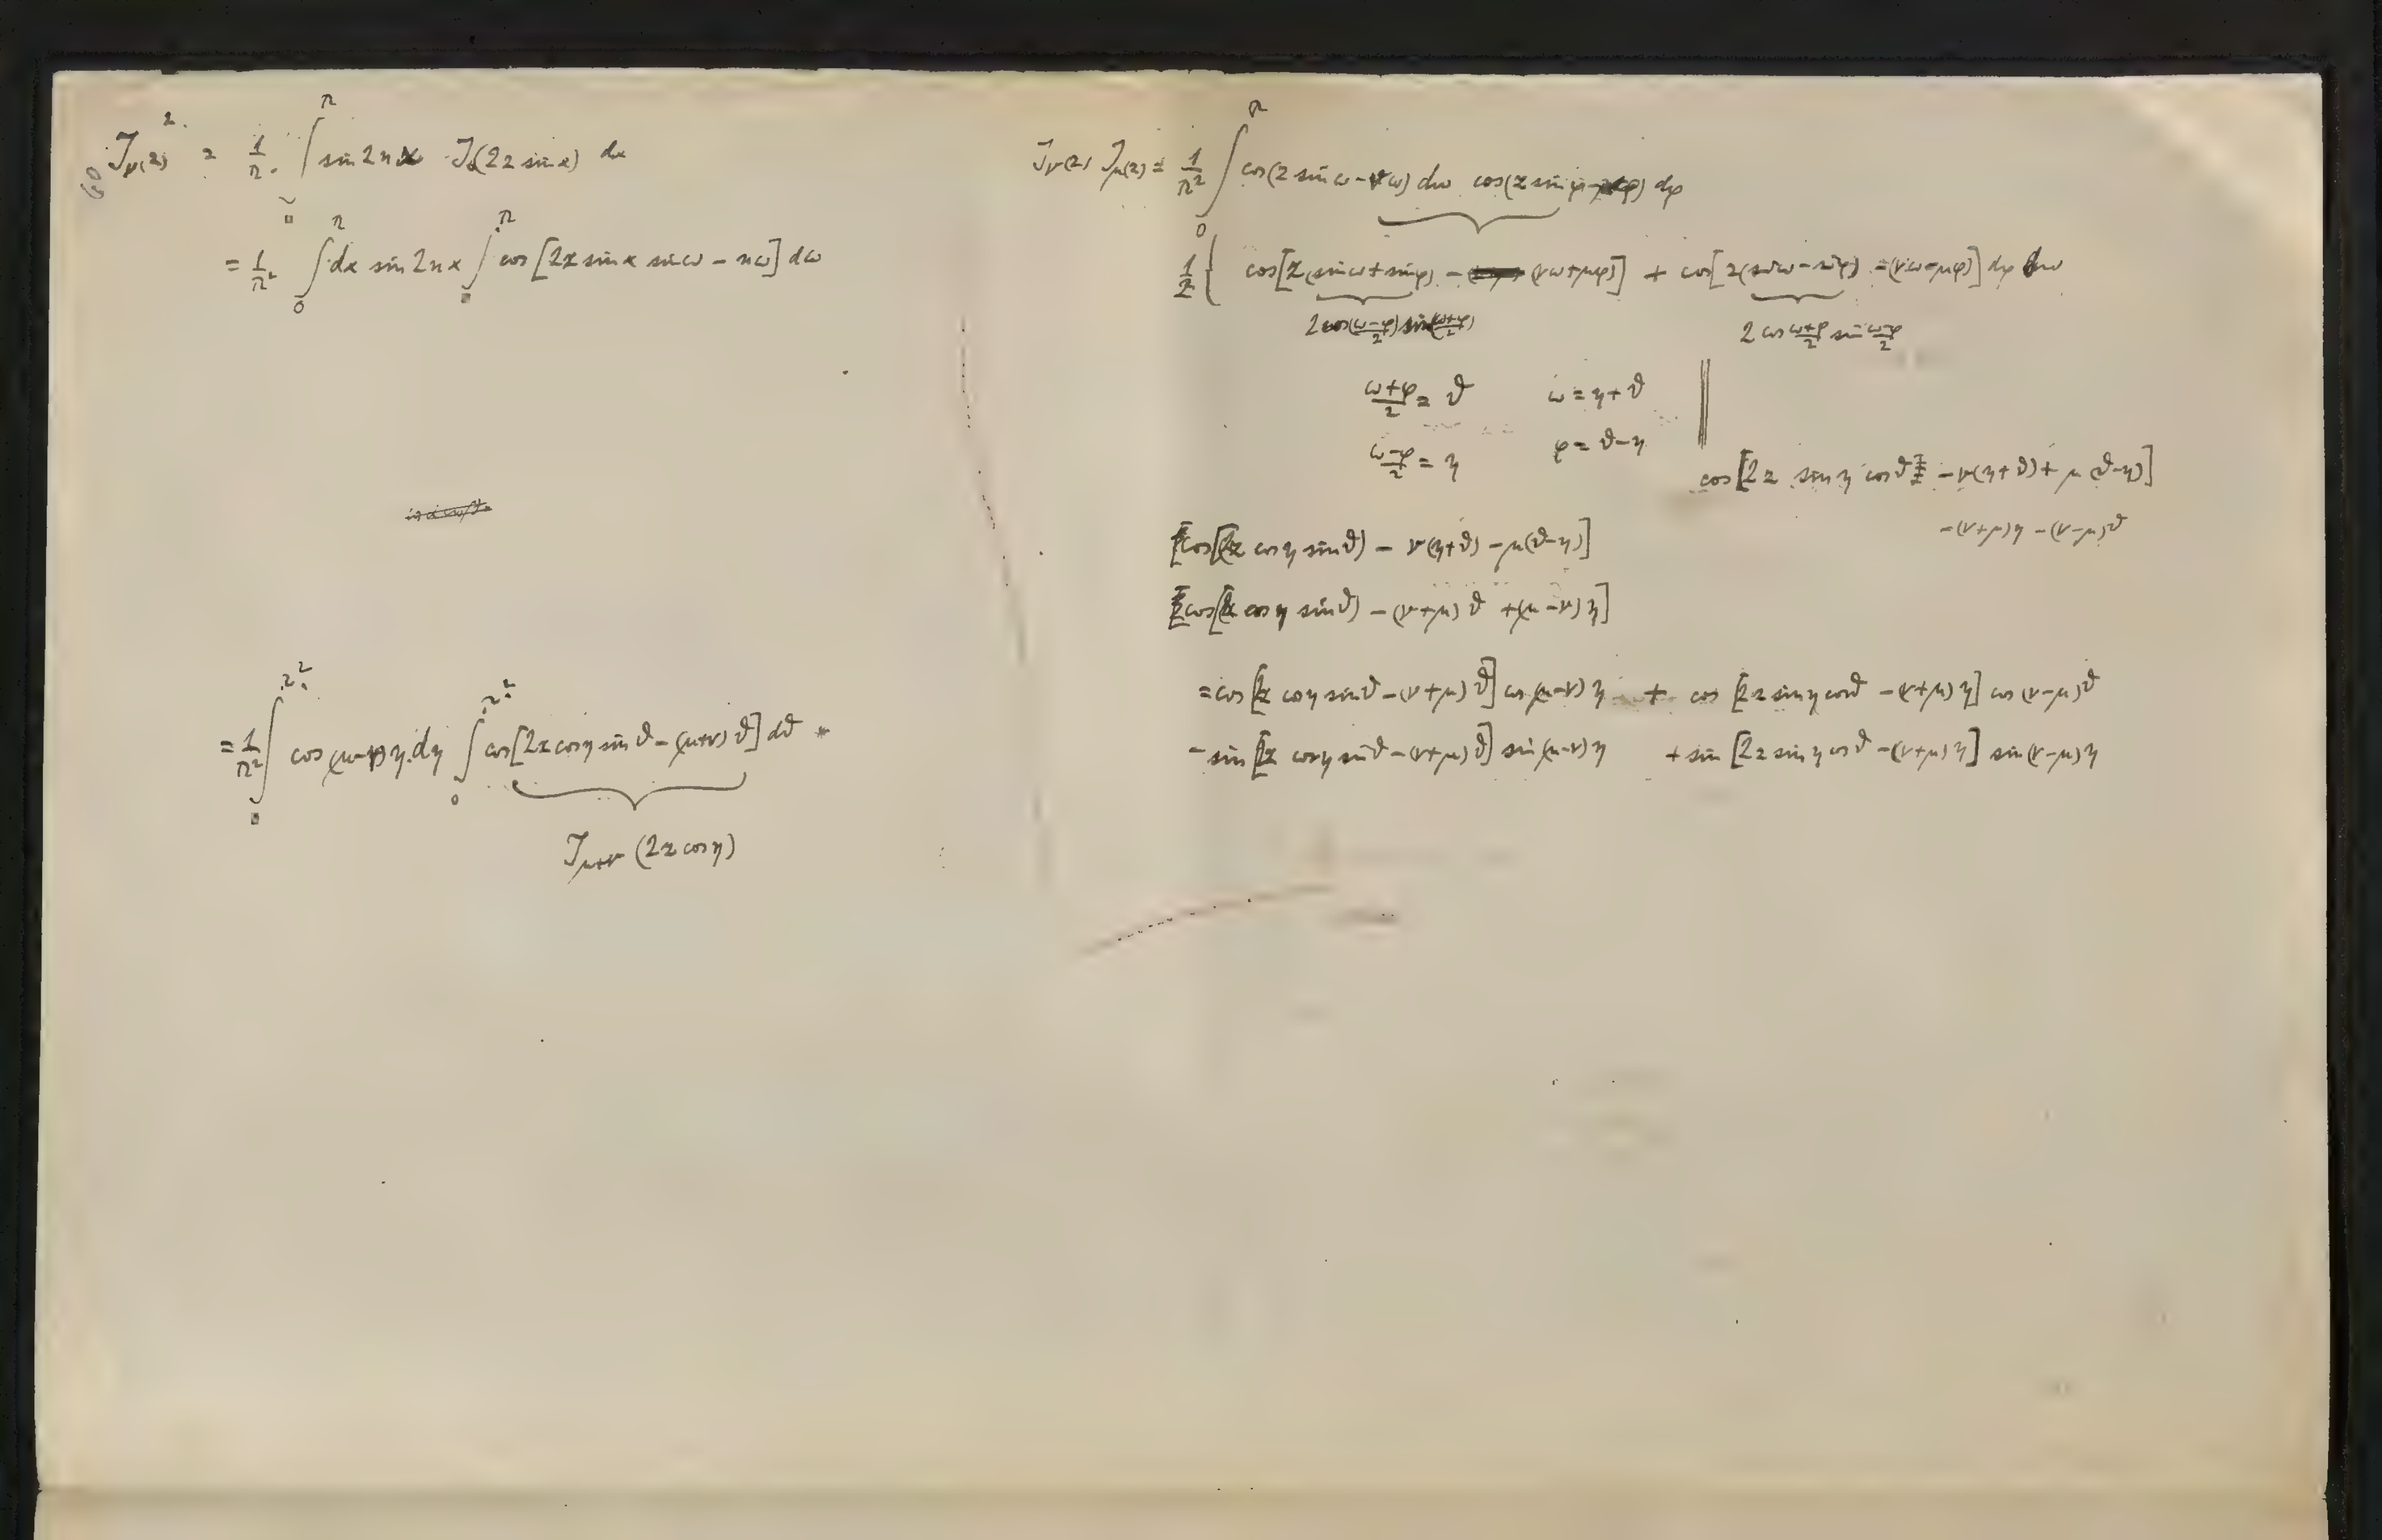 60 J_ν(z)² = 1/π ∫ π sin 2nx J₀(2z sin x) dx
= 1/π² ∫₀^π dx sin 2nx ∫^π cos [2z sin x sin ω − nω] dω
= 1/π² ∫ cos(μ−ν)η dη ∫₀ cos[2z cos η sin ϑ − (μ+ν) ϑ] dϑ
J_μ+ν (2z cos η)
J_ν(z) J_μ(z) = 1/π² ∫₀^π cos(z sin ω − νω) dω cos(z sin φ − μφ) dφ
1/2 { cos[z(sin ω + sin φ) − (νω + μφ)] + cos[z(sin ω − sin φ) − (νω − μφ)] dφ dω
2 cos (ω−φ)/2 sin (ω+φ)/2 2 cos (ω+φ)/2 sin (ω−φ)/2
(ω+φ)/2 = ϑ ω = η + ϑ
(ω−φ)/2 = η φ = ϑ − η
cos[2z sin η cos ϑ − ν(η+ϑ) + μ(ϑ−η)]
−(ν+μ)η −(ν−μ)ϑ
cos[(2z cos η sin ϑ) − ν(η+ϑ) − μ(ϑ−η)]
cos[(2z cos η sin ϑ) − (ν+μ) ϑ + (μ−ν) η]
= cos [2z cos η sin ϑ − (ν+μ) ϑ] cos(μ−ν) η + cos [2z sin η cos ϑ − (ν+μ) η] cos (ν−μ)ϑ
− sin [2z cos η sin ϑ − (ν+μ) ϑ] sin (μ−ν) η + sin [2z sin η cos ϑ − (ν+μ) η] sin(ν−μ) η